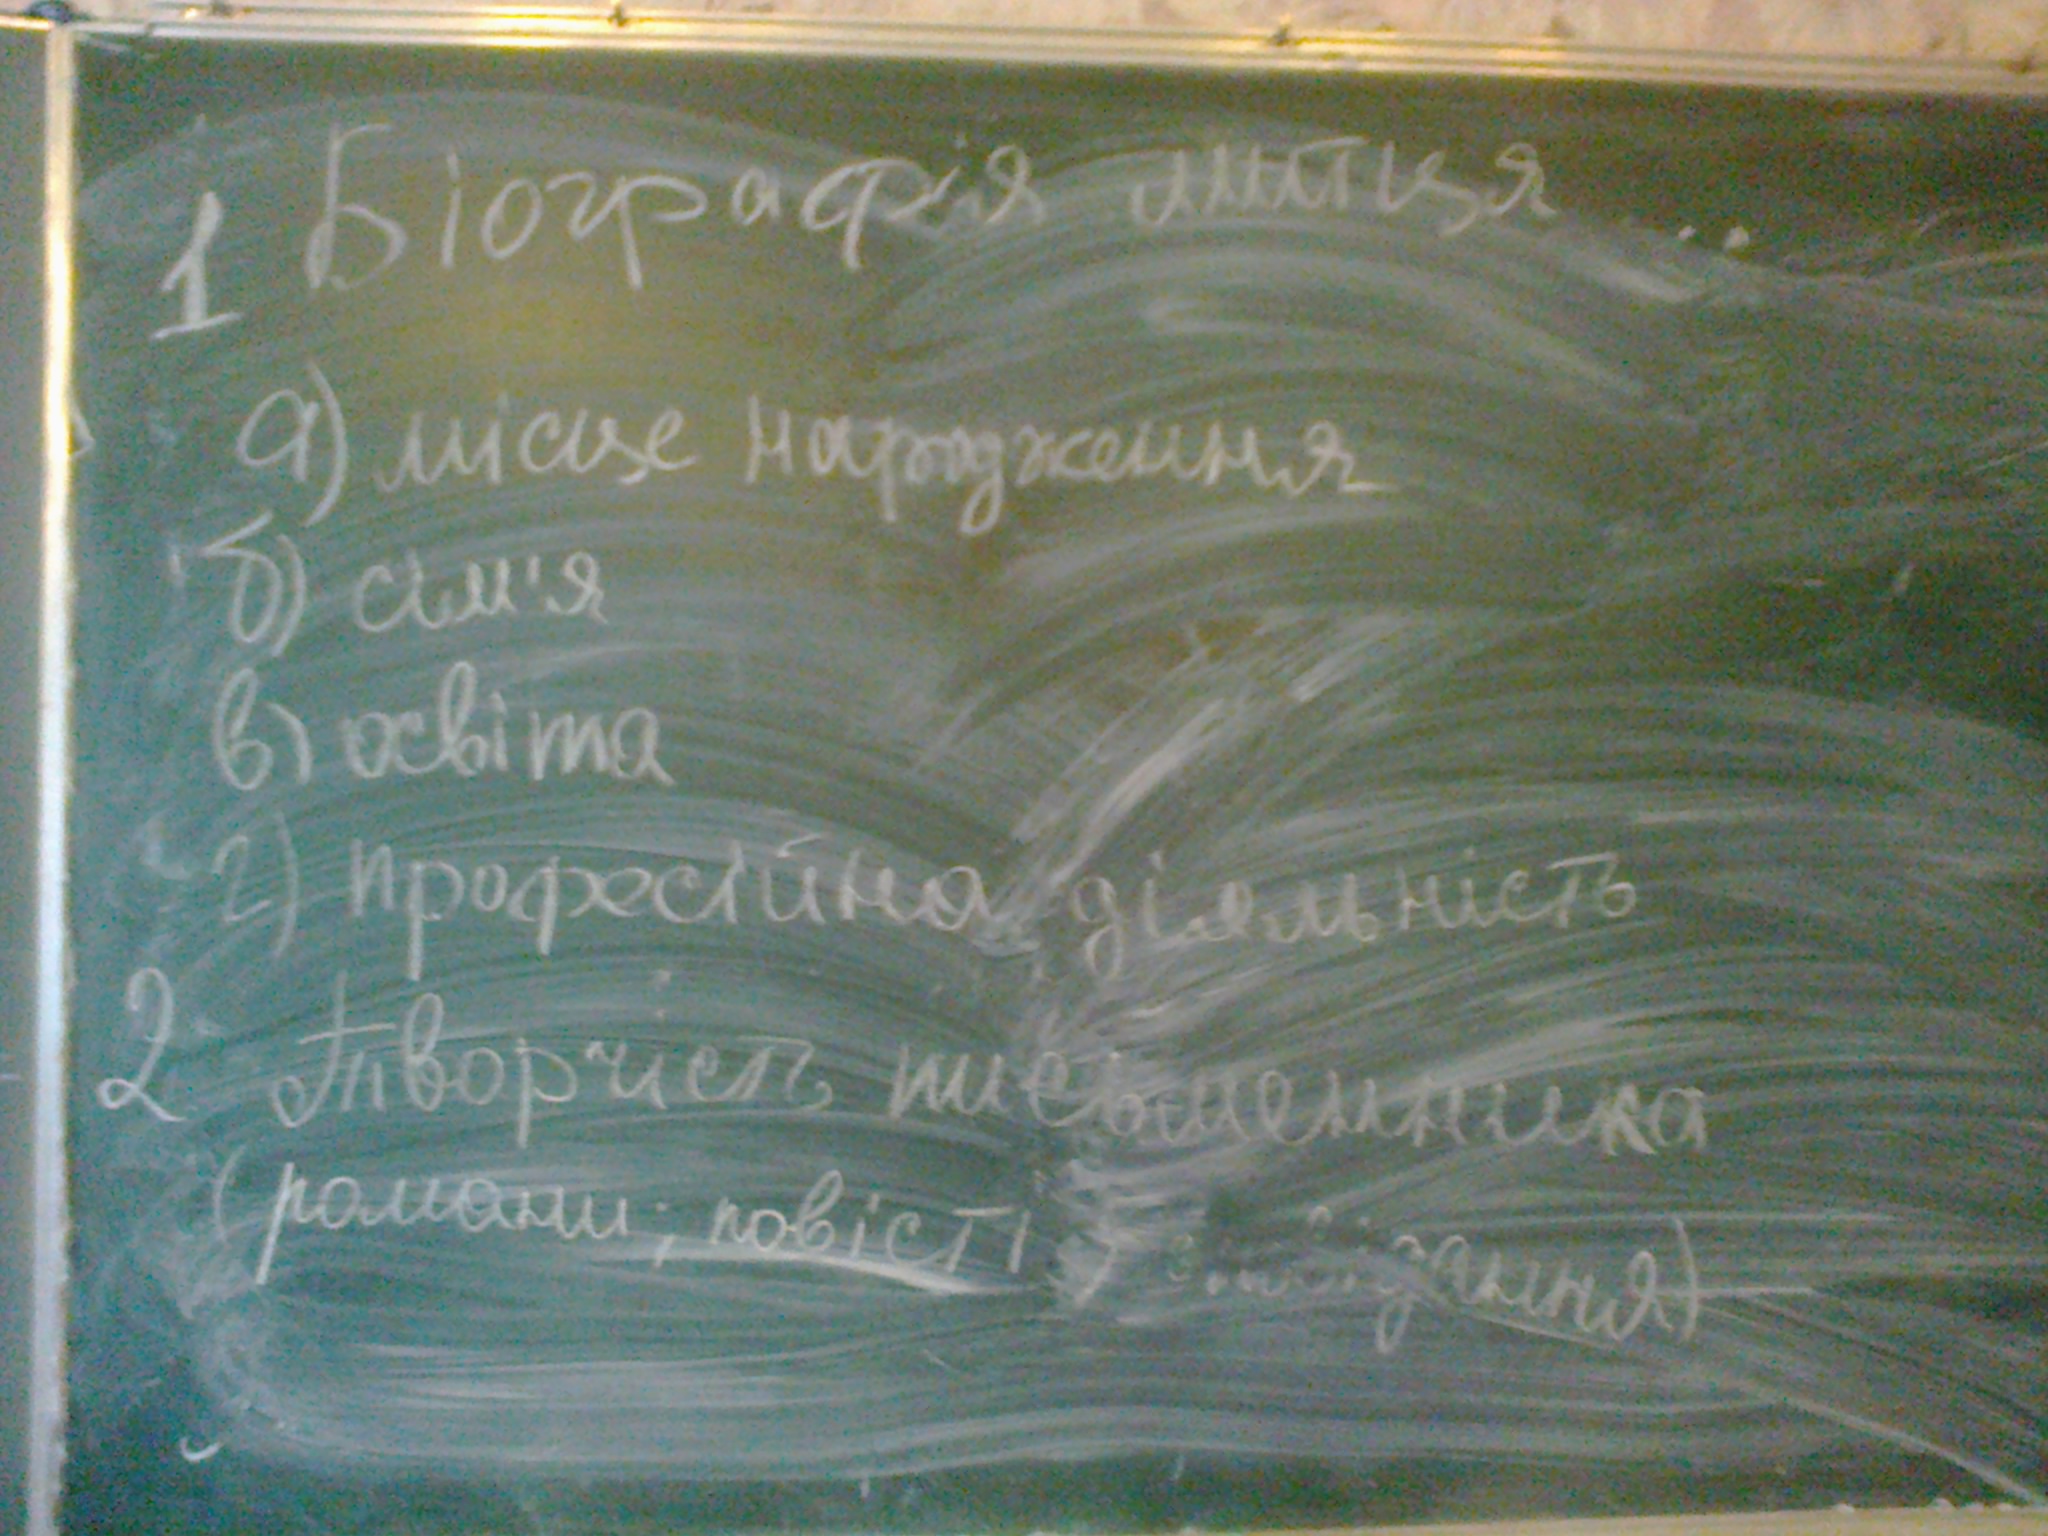 1 Біографія митця ...
а) місце народження
б) сім'я
в) освіта
г) професійна діяльність
2 Творчість письменника
(романи; повісті; оповідання)